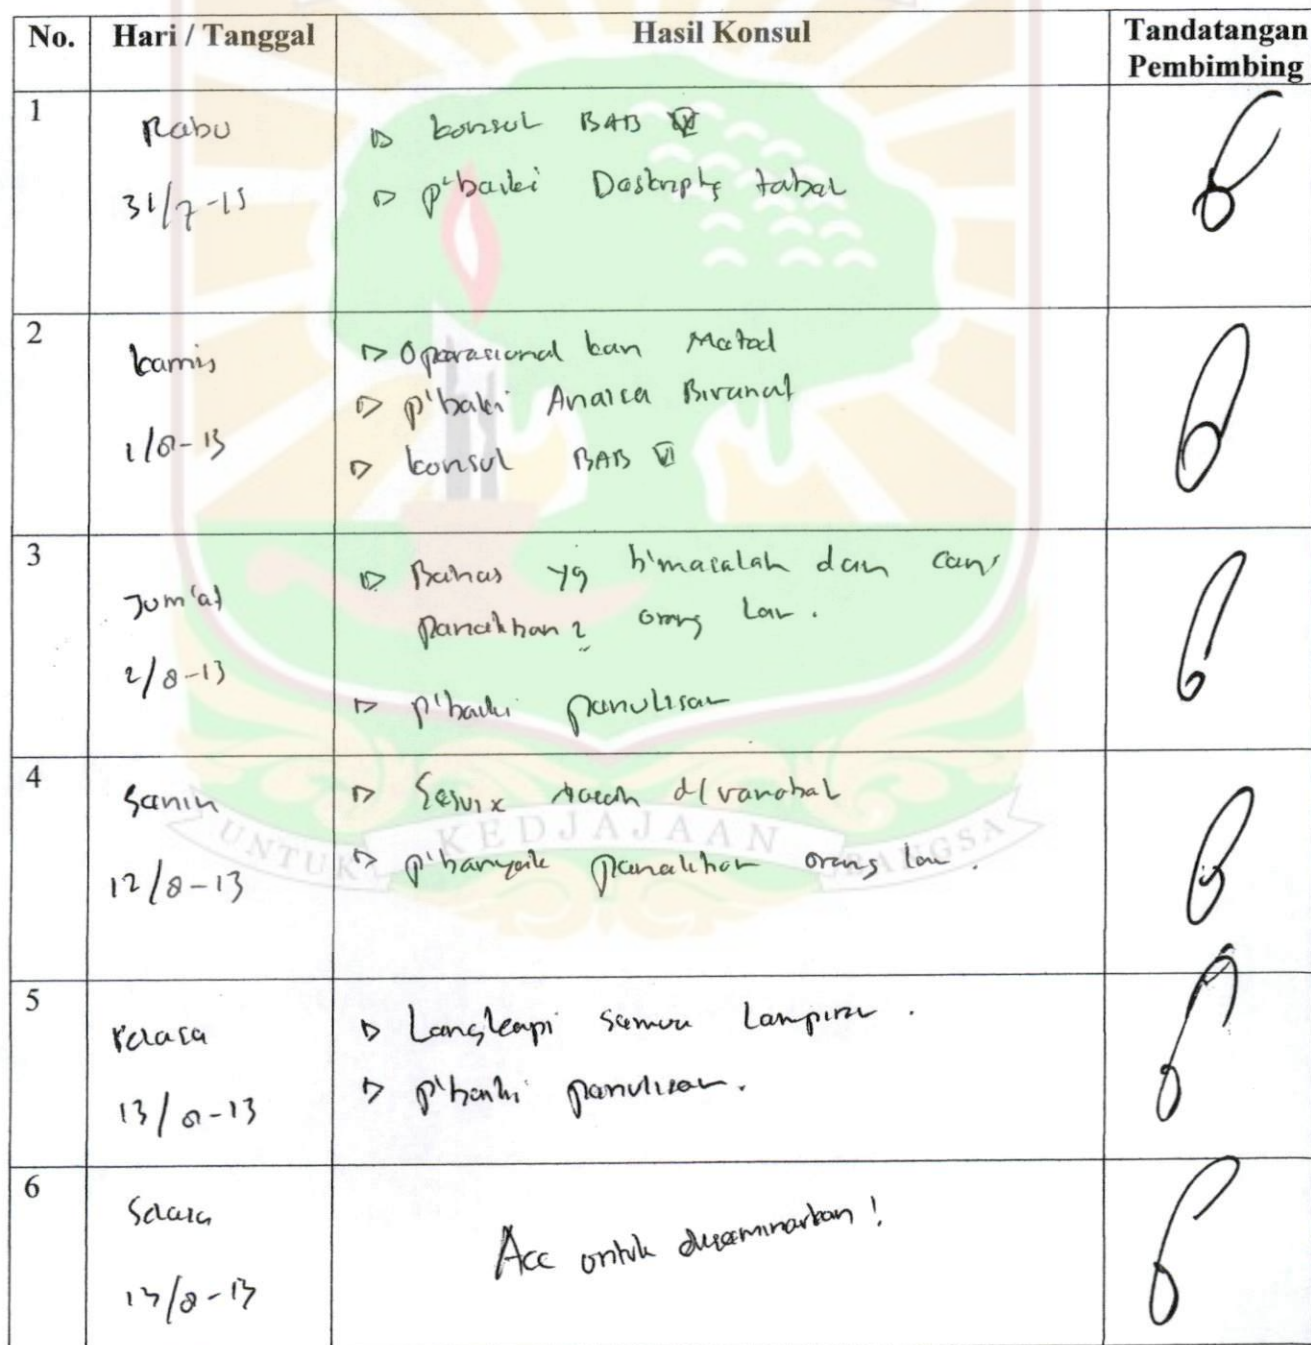 No. Hari / Tanggal Hasil Konsul Tandatangan
Pembimbing
1
Rabu
31/7-13
konsul BAB
p'baiki Deskripsi tabel
2
kamis
1/8-13
Operasional kan Metod
p'baiki Analisa Bivariat
konsul BAB VI
3
Jum'at
2/8-13
Bahas yg b'masalah dan cari
penelitian2 orang lain.
p'baiki penulisan
4
Senin
12/8-13
d/ variabel
p'banyak penelitian orang lain.
UNTUK KEDJAJAAN BANGSA
5
Selasa
13/8-13
Lengkapi semua lampiran.
p'baiki penulisan.
6
Selasa
13/8-13
Acc untuk diseminarkan!